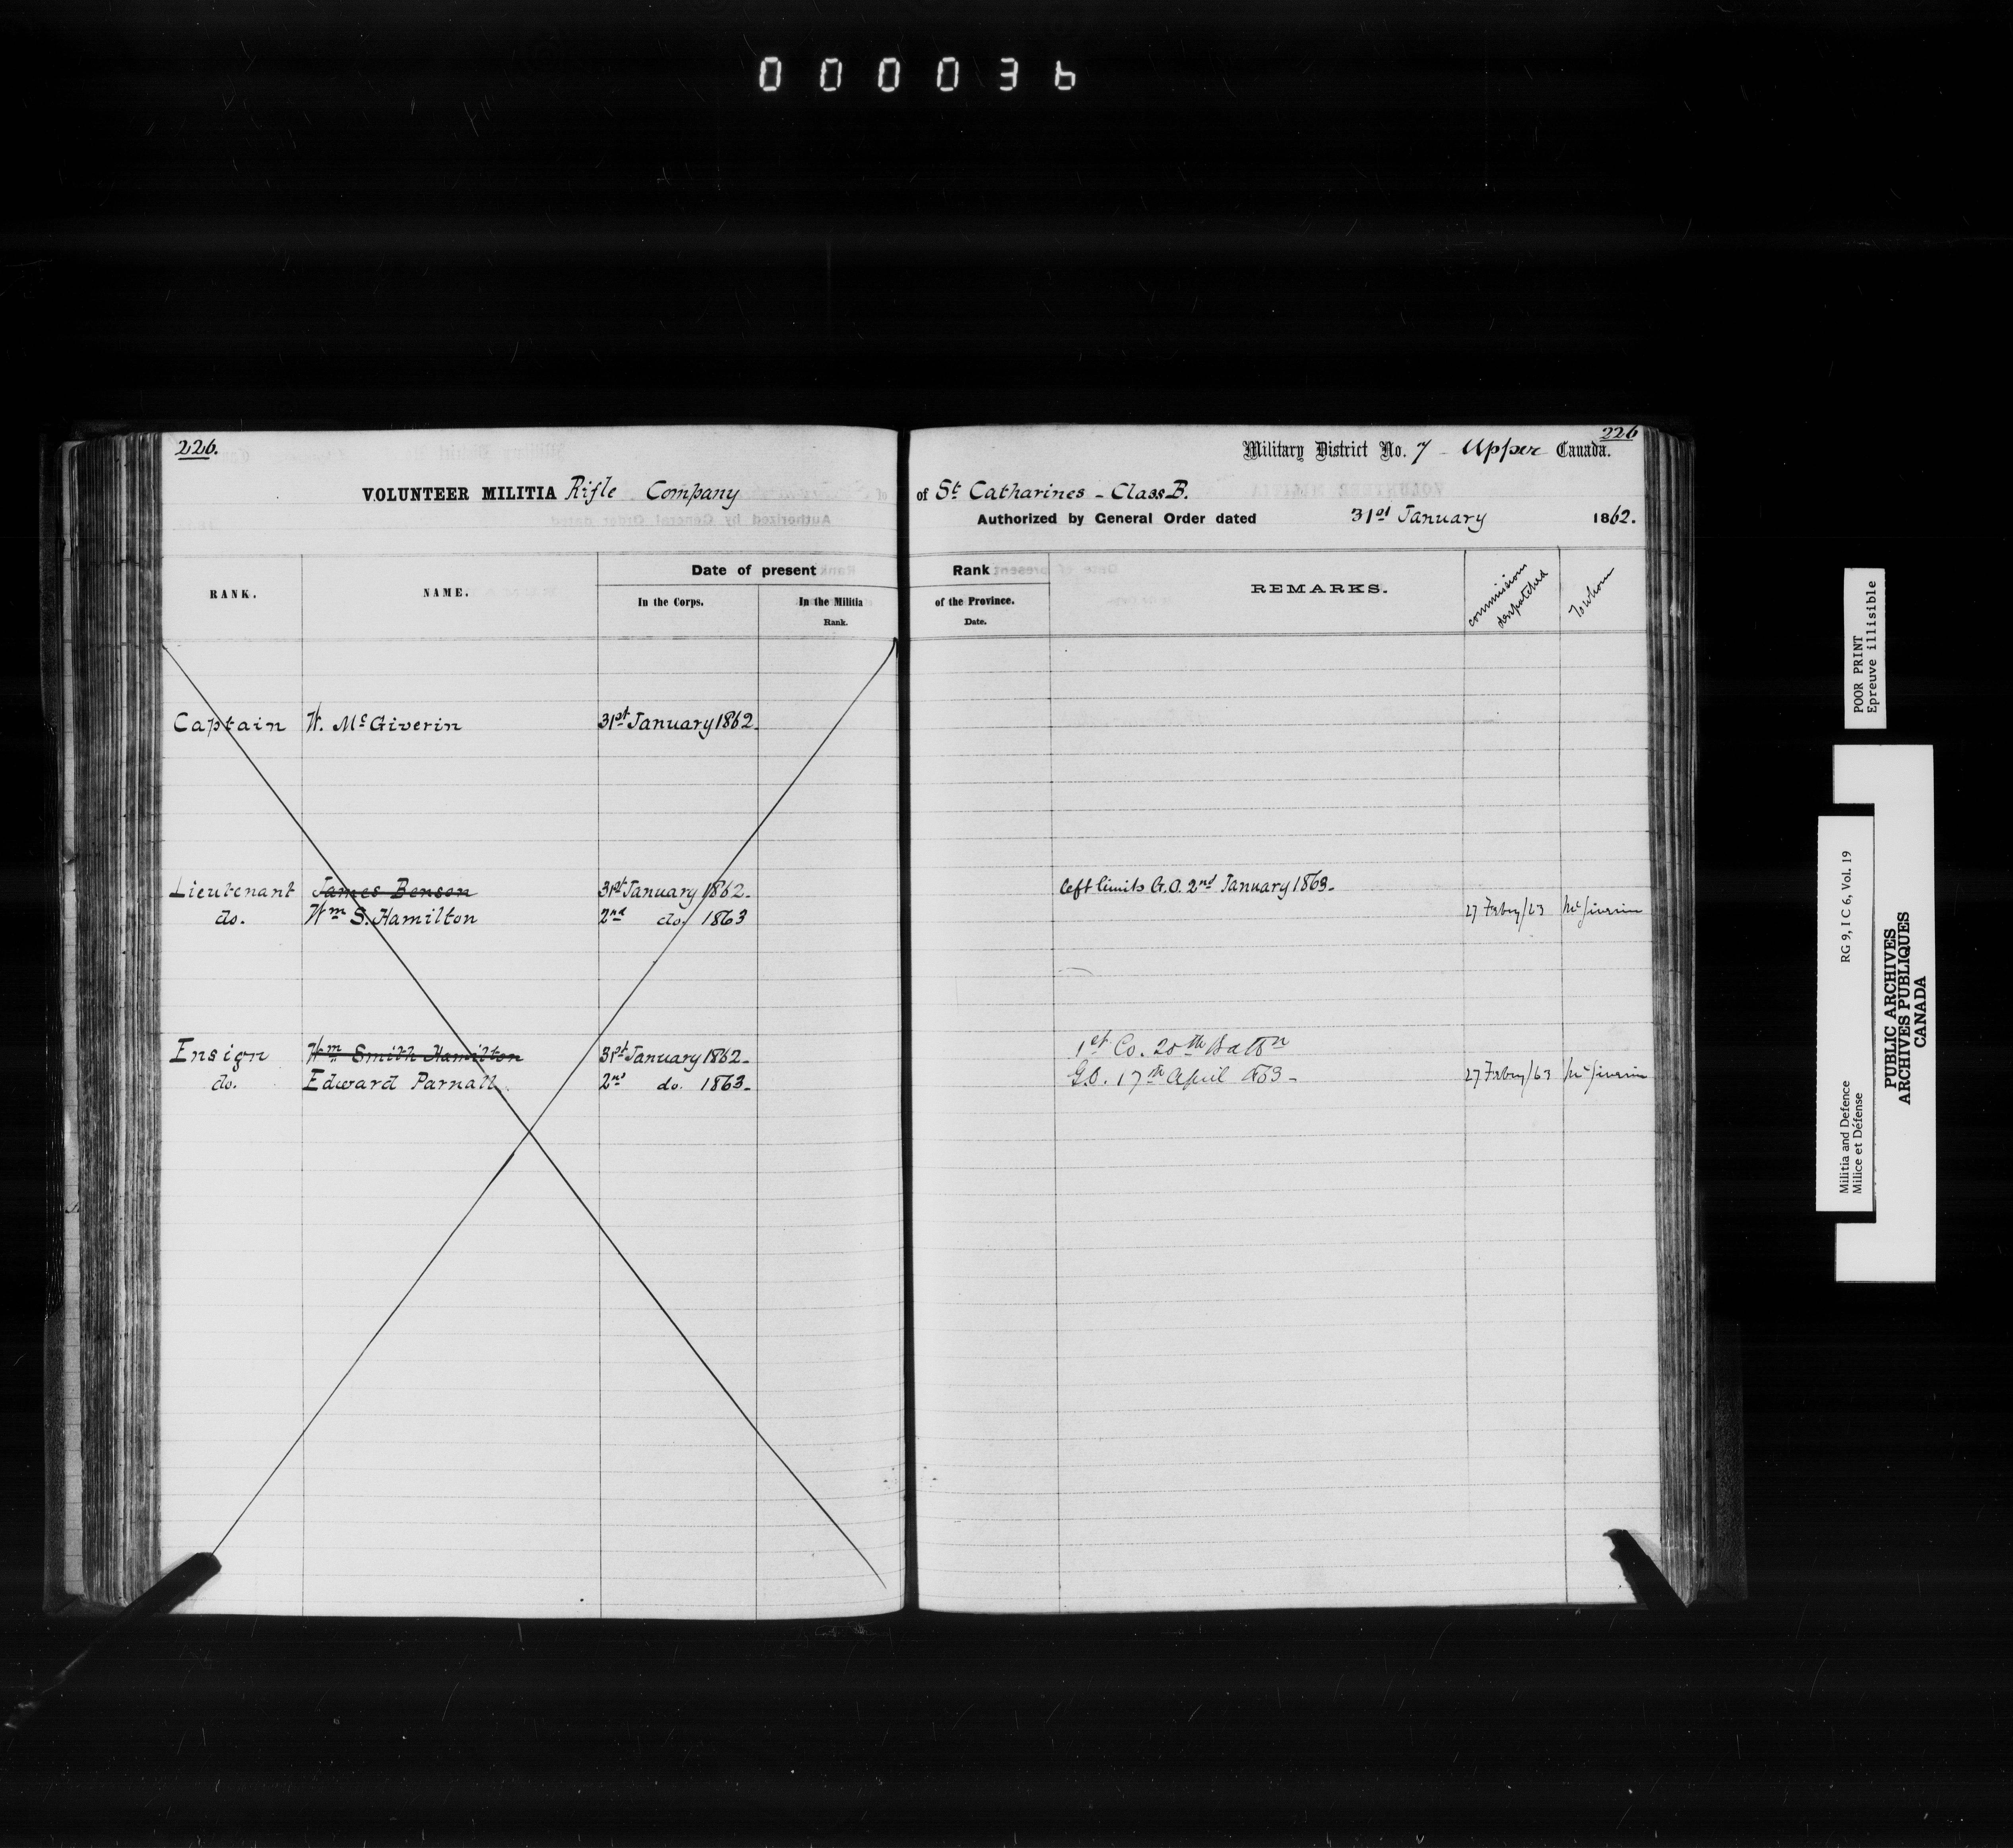 000036
226.
VOLUNTEER MILITIA Rifle Company
RANK.
NAME.
Date of present
In the Corps.
In the Militia
Rank.
Captain W. McGiverin 31st January 1862.
Lieutenant James Benson 31st January 1862.
do. Wm S. Hamilton 2nd do. 1863
Ensign Wm Smith Hamilton 31st January 1862.
do. Edward Parnall 2nd do. 1863.
226
Military District No. 7 - Upper Canada.
of St Catharines - Class B.
Authorized by General Order dated 31st January 1862.
Rank
of the Province.
Date.
REMARKS.
commissions
despatched
To whom
left limits G.O. 2nd January 1863.
27 Febry/63 McGiverin
1st Co. 20th Battn
G.O. 17th April 1863 - 27 Febry/63 McGiverin
POOR PRINT
Epreuve illisible
Militia and Defence RG 9, I C 6, Vol. 19
Milice et Défense
PUBLIC ARCHIVES
ARCHIVES PUBLIQUES
CANADA